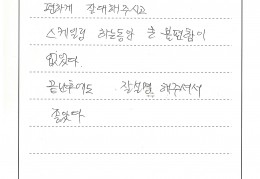 편하게 잘 대해주시고
스케일링 하는동안 큰 불편함이
없었다.
끝난후에도 잘설명 해주셔서
좋았다.